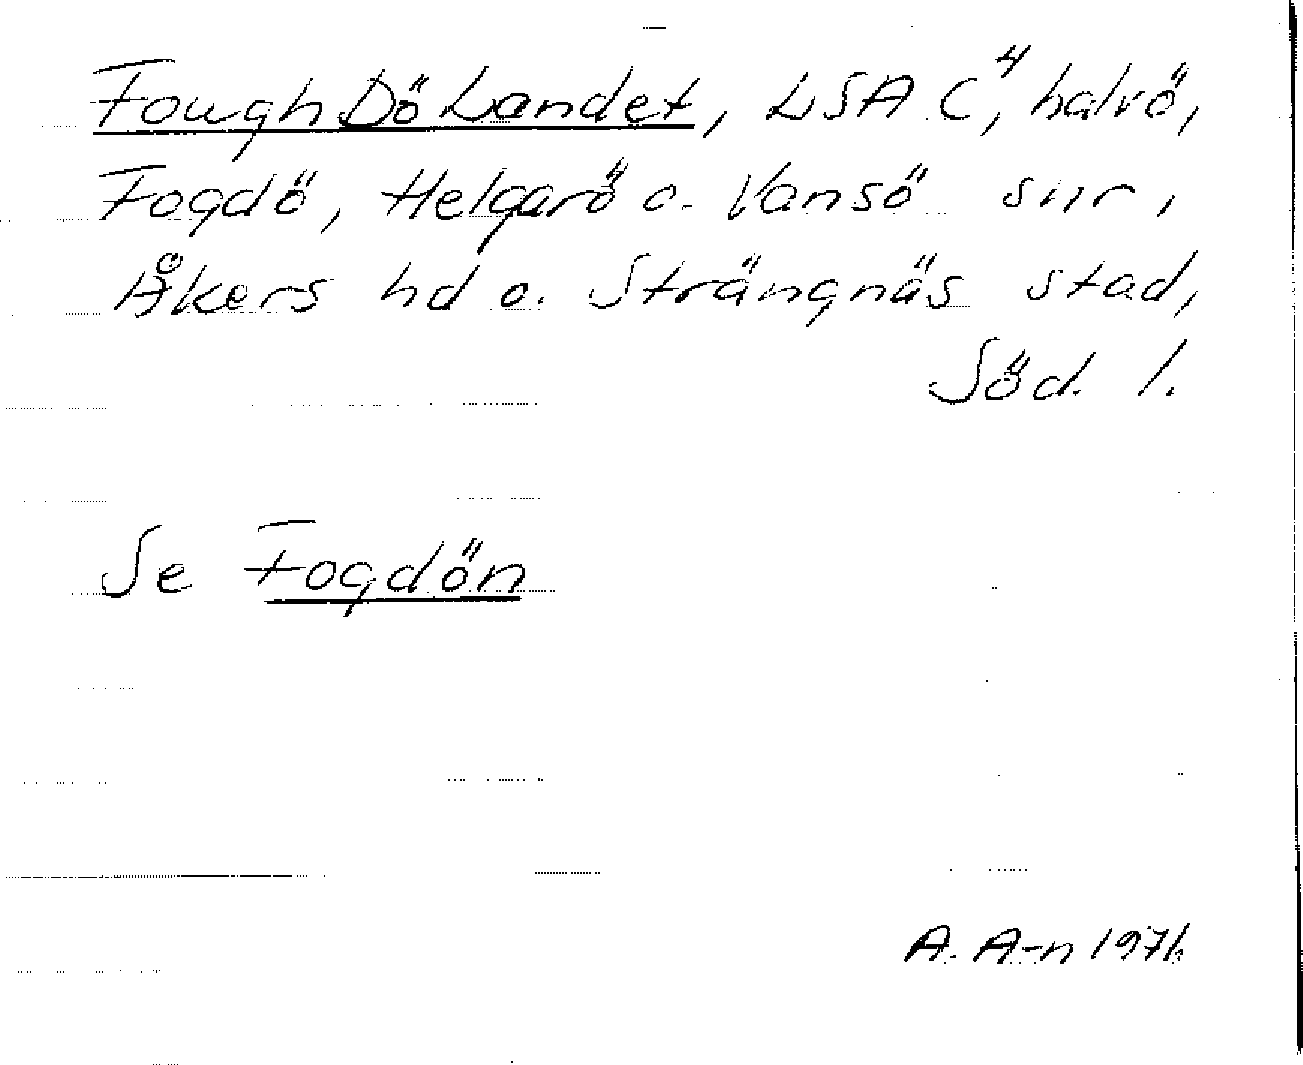 Fough Dö Landet, LSA C⁴, halvö,
Fogdö, Helgarö o. Vansö snr,
Åkers hd o. Strängnäs stad,
Söd. l.
Se Fogdön
A. A-n 1976